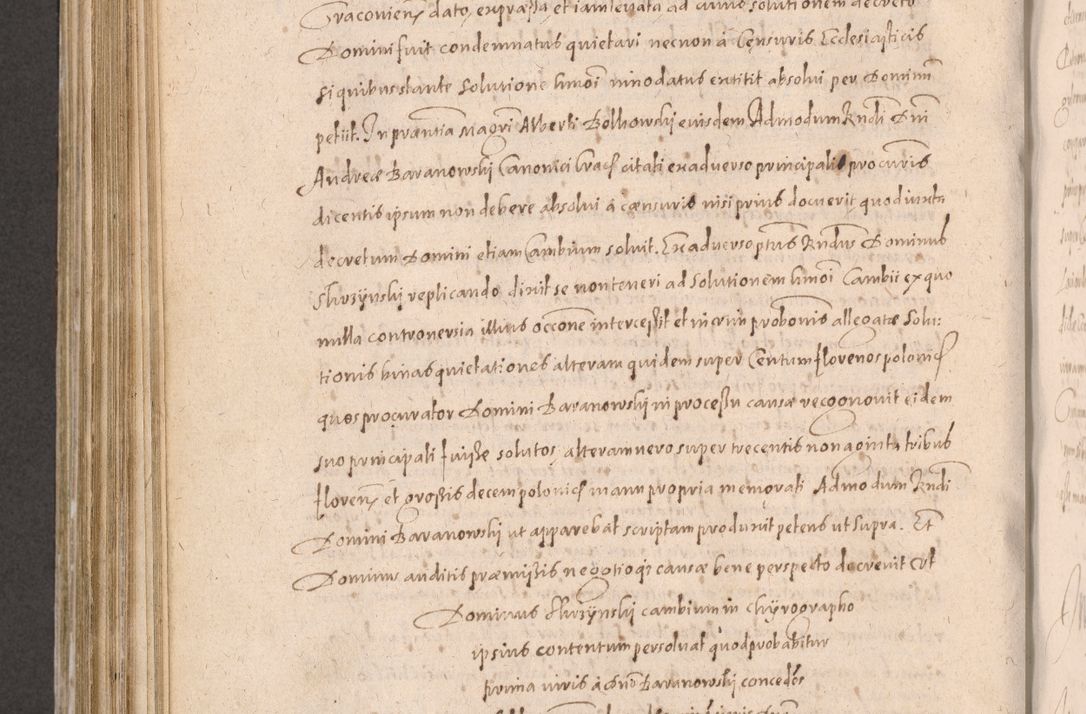 Cracovien dato, expressa et iam levata ad cuius solutionem decreto
Domini fuit condemnatus quietari necnon à Censuris Ecclesiasticis
si quibus stante Solutione hmoi innodatus extitit absolvi per Dominũ
petiit. In prãentia Magri Alberti Bolkowskij eiusdem Admodum Rndi Dni
Andreæ Baranowskij Canonici Crac citati ex adverso principalis procuris
dicentis ipsum non debere absolvi à censuris nisi prius docuerit quod iuxta
decretum Domini etiam Cambium soluit. Ex adverso ptus Rndus Dominus
Skrzÿnskij replicando dixit se non teneri ad Solutionem hmoi Cambii ex quo
nulla controversia illius occõne intercessit et in crim probonis allegatæ Solu:
tionis binas quietationes alteram quidem super Centum florenos polonic
quos procurator Domini Baranowskij in processu causæ recognovit eidem
suo principali fuisse solutos, alteram vero super trecentis nonaginta tribus
floren et grossis decem polonic manu propria memorati Admodum Rndi
Domini Baranowskij ut apparebat scriptam produxit petens ut supra. Et
Dominus auditis præmissis negotioq causæ bene perspecto decrevit Ut
Dominus Skrzÿnskij cambium in chÿrographo
ipsius contentum persolvat quod probabitur
firma viris à Dno Baranowskij